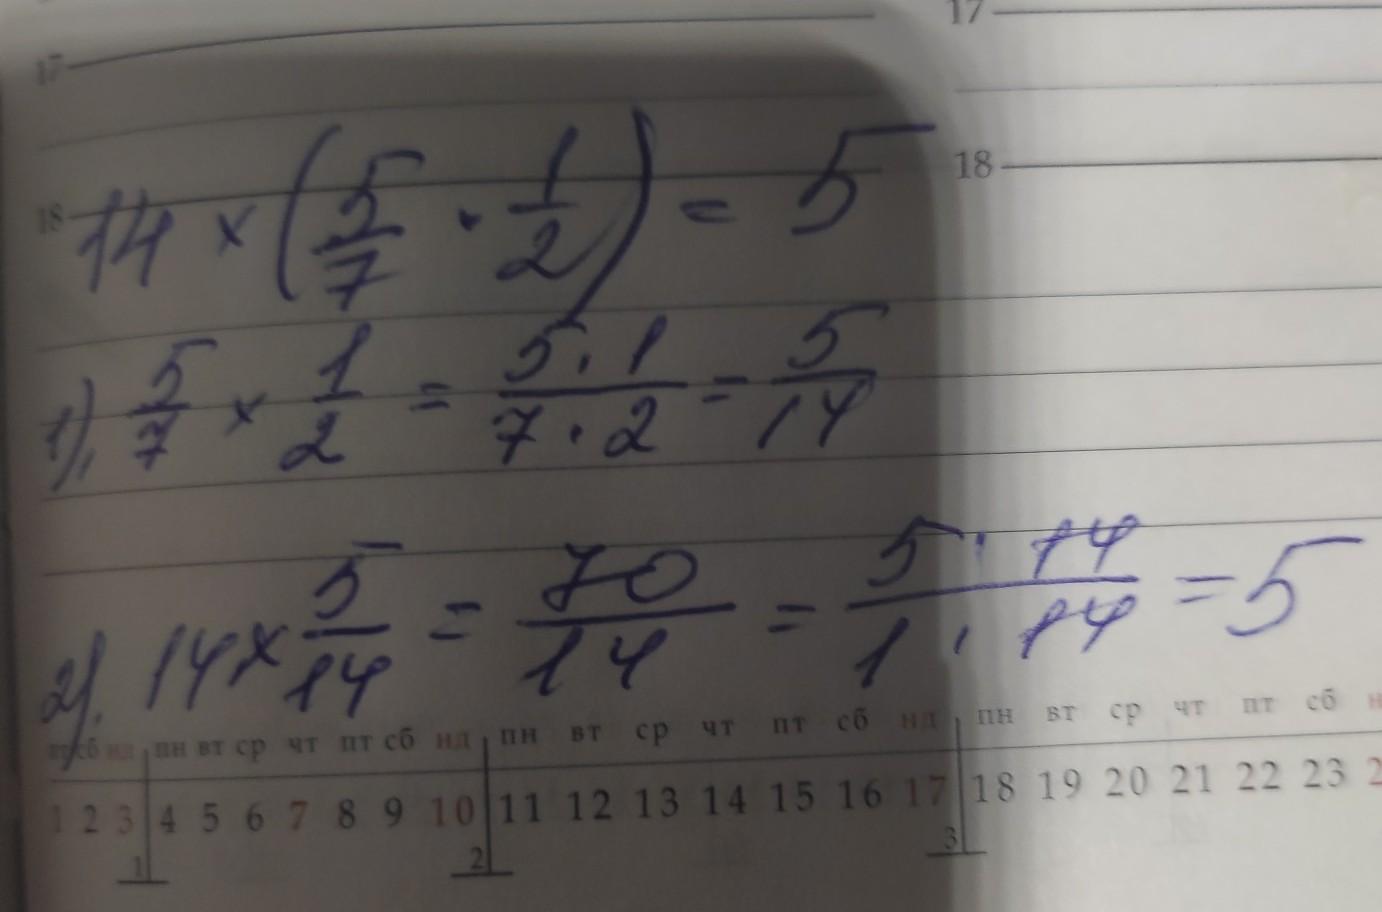 17
17
18
18
14 × (5/7 · 1/2) = 5
1). 5/7 × 1/2 = 5·1/7·2 = 5/14
2). 14 × 5/14 = 70/14 = 5·14/1·14 = 5
пт сб нд пн вт ср чт пт сб нд пн вт ср чт пт сб нд пн вт ср чт пт сб н
1 2 3 4 5 6 7 8 9 10 11 12 13 14 15 16 17 18 19 20 21 22 23 2
1 2 3